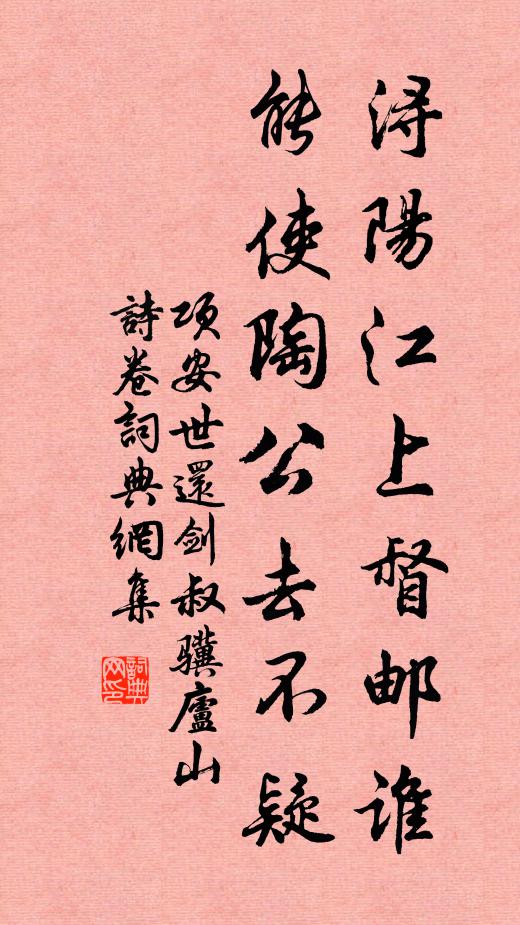 浔陽江上督邮谁
能使陶公去不疑
项安世還劍叔骥廬山
詩卷詞典網集
詞典网印